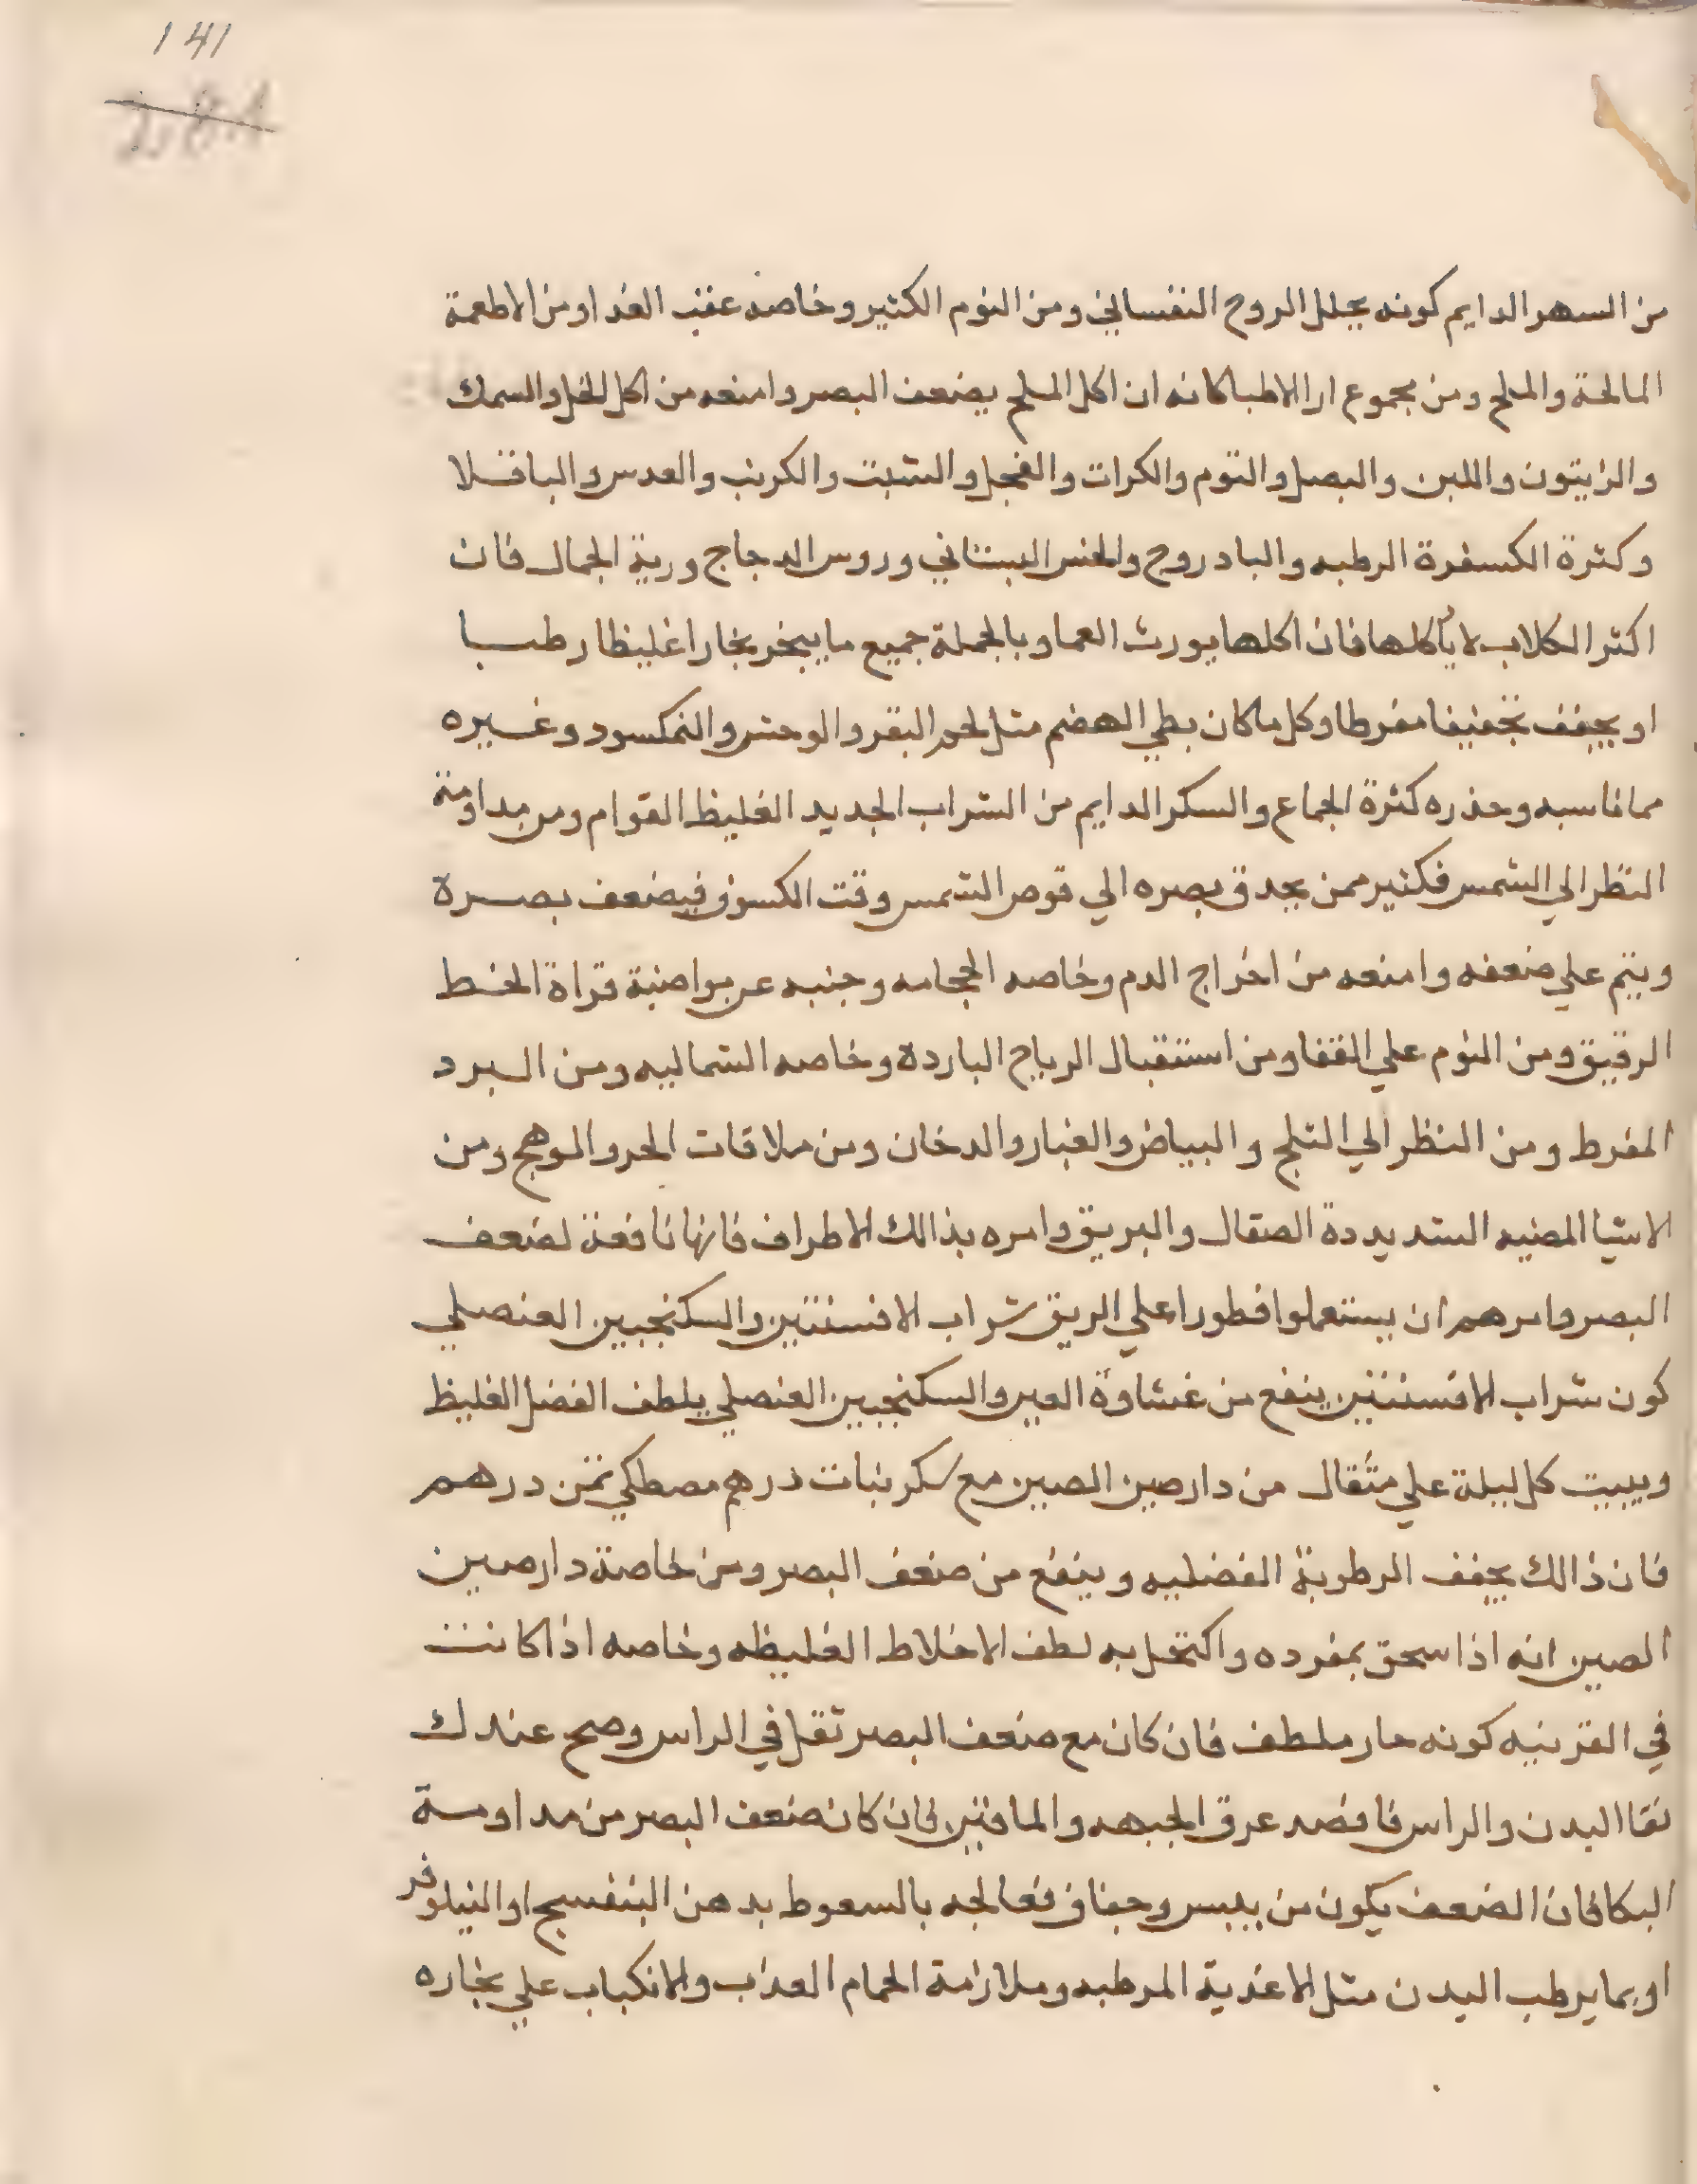 141
من السهر الدايم كونه يحلل الروح النفساني ومن النوم الكثير وخاصه عقب الغدا ومن الاطعمة
المالحة والملح ومن مجموع ارا الاطبا كانه ان اكل الملح يضعف البصر وامنعه من اكل الخل والسمك
والزيتون واللبن والبصل والتوم والكرات والفجل والشبت والكرنب والعدس والباقلا
وكثرة الكسفرة الرطبه والبادروج والخس البستاني وروس الدجاج ورية الجمال فان
اكثر الكلاب لا يأكلها فان اكلها يورث العما وبالجملة جميع ما يبخر بخارا غليظا رطبا
او يجفف تجفيفا مفرطا وكل ما كان بطي الهضم مثل لحم البقر والوحش والنمكسود وغيره
مما ناسبه وحذره كثرة الجماع والسكر الدايم من الشراب الجديد الغليظ القوام ومن مداومة
النظر الي الشمس فكثير ممن يحدق بصره الي قوص الشمس وقت الكسوف فيضعف بصرة
ويتم علي ضعفه وامنعه من اخراج الدم وخاصه الحجامه وجنبه عن مواضبة قراة الخط
الرقيق ومن النوم علي القفا ومن استقبال الرياح الباردة وخاصه الشماليه ومن البرد
المفرط ومن النظر الي الثلج والبياض والغبار والدخان ومن ملاقات الحر والموهج ومن
الاشيا المضيه الشديددة الصقال والبريق وامره بذالك الاطراف فانها نافعة لضعف
البصر وامرهم ان يستعملوا فطورا علي الريق شراب الافسنتين والسكنجبين العنصلي
كون شراب الافسنتين ينفع من غشاوة العين والسكنجبين العنصلي يلطف الفضل الغليظ
ويبيت كل ليلة علي مثقال من دارصين الصين مع سكر نبات درهم مصطكي ثمن درهم
فان ذالك يجفف الرطوبة الفضليه وينفع من ضعف البصر ومن خاصة دارصين
الصين انه اذا سحق بمفرده واكتحل به لطف الاخلاط الغليظه وخاصه اذا كانت
في القرنيه كونه حار ملطف فان كان مع ضعف البصر ثقل في الراس وصح عندك
نقا البدن والراس فافصد عرق الجبهه والماقين فان كان ضعف البصر من مداومة
البكا فان الضعف يكون من يبس وجفاف فعالجه بالسعوط بدهن البنفسج او النيلوفر
او بما يرطب البدن مثل الاغذية المرطبه وملازمة الحمام العذاب والانكباب علي بخاره